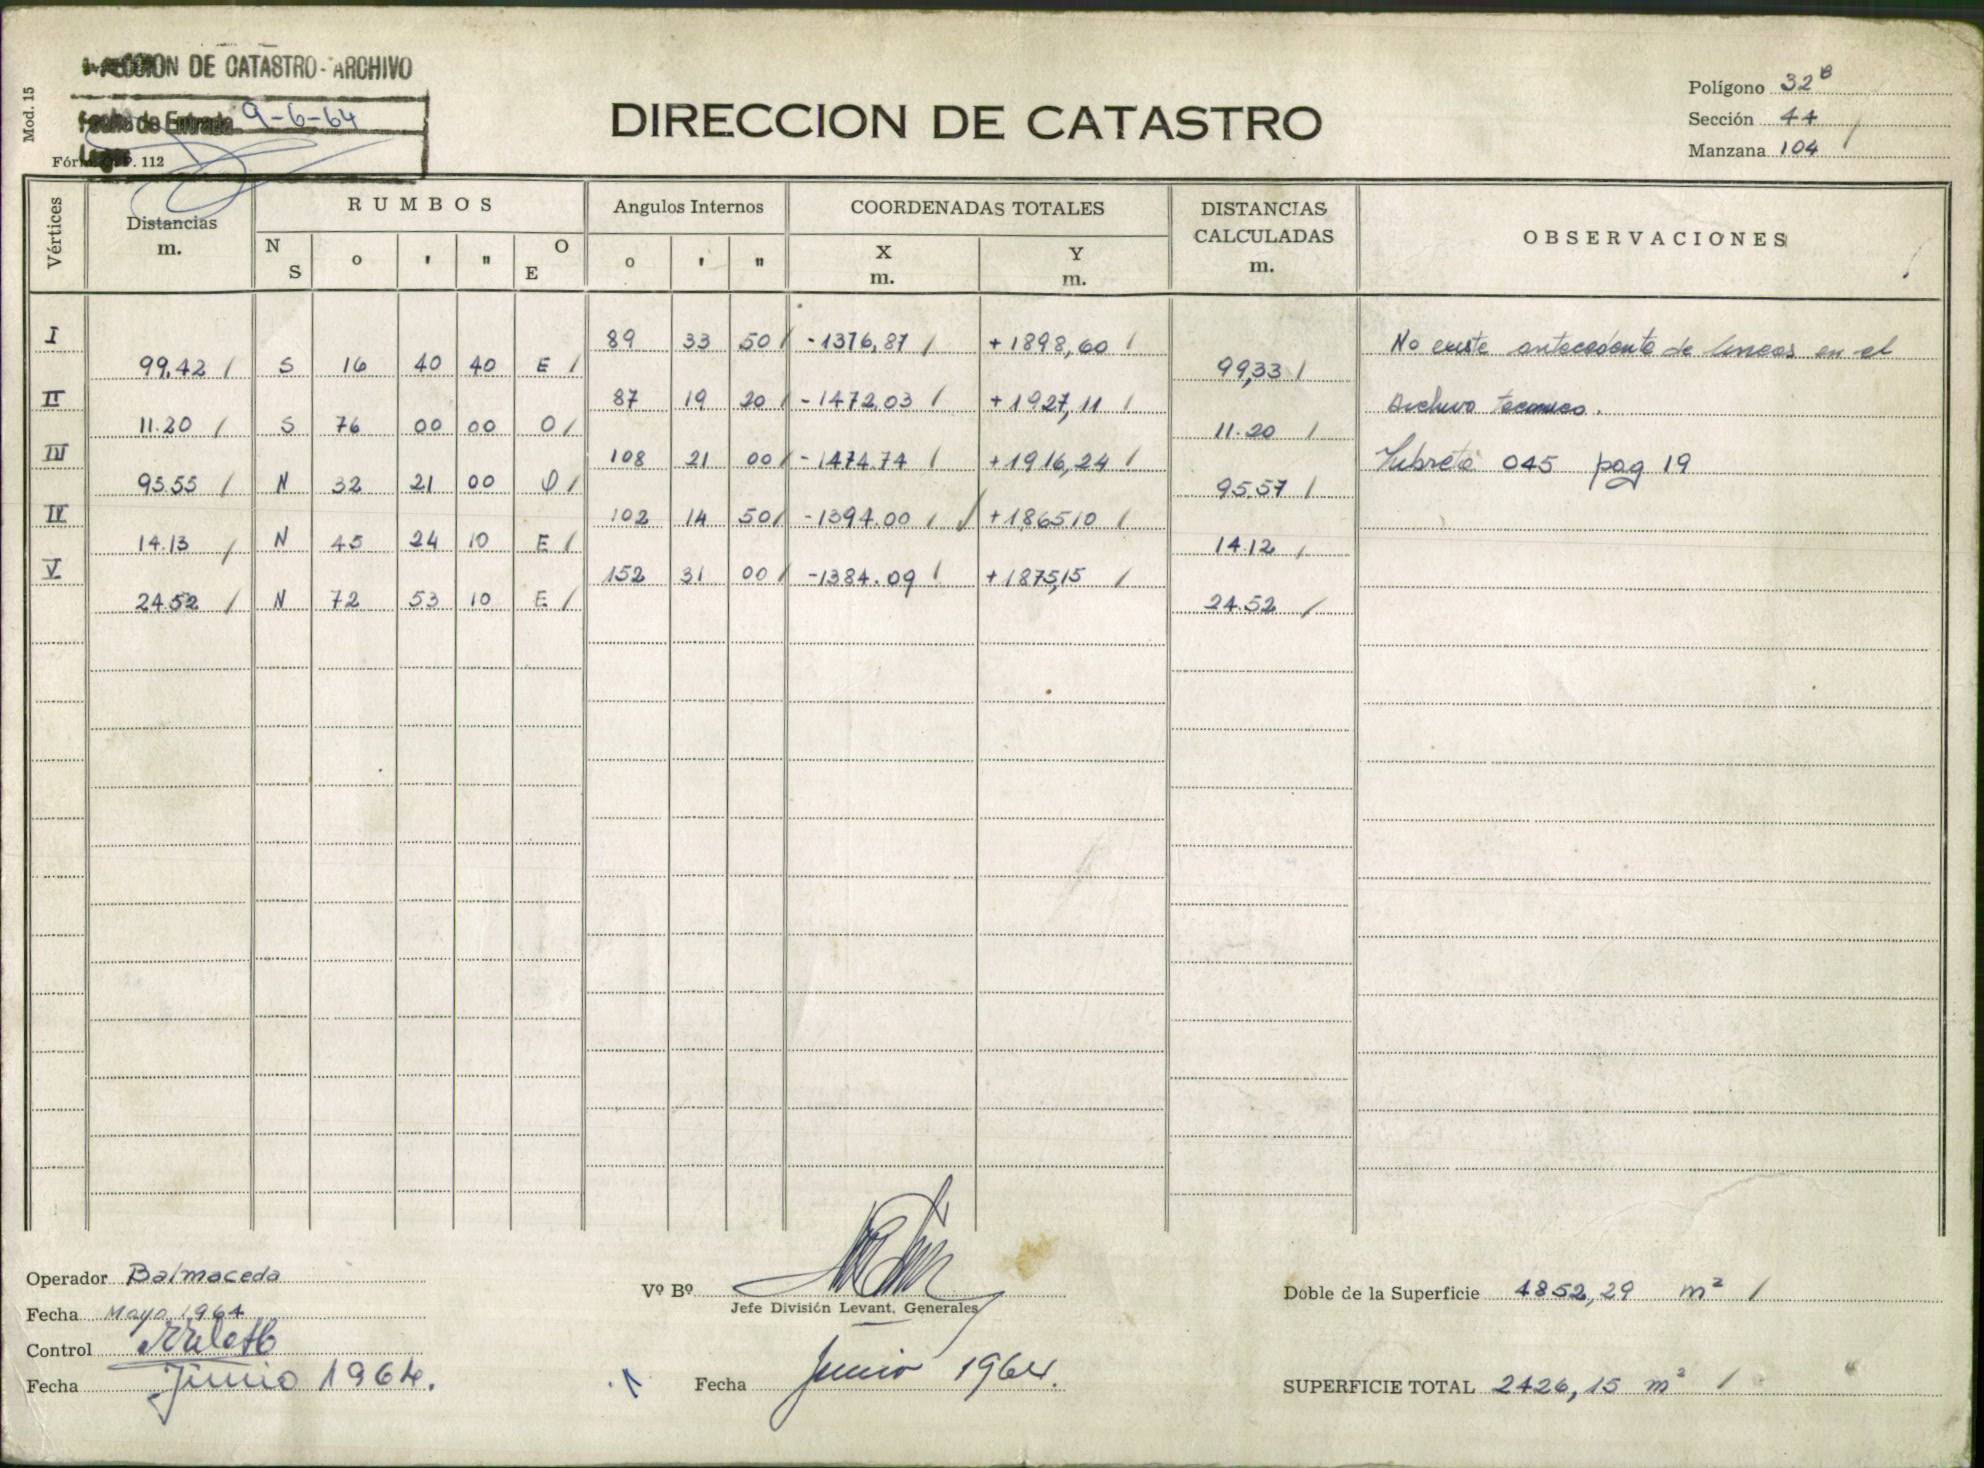 CCION DE CATASTRO - ARCHIVO
Mod. 15
Fecha de Entrada 9-6-64
P. 112
DIRECCION DE CATASTRO
Polígono 32B
Sección 44
Manzana 104
Vértices
Distancias
m.
RUMBOS
N
S
o
'
"
O
E
Angulos Internos
o
'
"
COORDENADAS TOTALES
X
m.
Y
m.
DISTANCIAS
CALCULADAS
m.
OBSERVACIONES
I 89 33 50 -1376,87 +1898,60 No existe antecedente de lineas en el
99,42 S 16 40 40 E 99,33
II 87 19 20 -1472.03 +1927,11 Archivo tecnico.
11.20 S 76 00 00 O 11.20
III 108 21 00 -1474.74 +1916,24 Libreta 045 pag 19
95.55 N 32 21 00 O 95.57
IV 102 14 50 -1394.00 +1865,10
14.13 N 45 24 10 E 14.12
V 152 31 00 -1384.09 +1875,15
24.52 N 72 53 10 E 24.52
Operador Balmaceda
Fecha Mayo 1964
Control
Fecha Junio 1964.
Vº Bº
Jefe División Levant. Generales
Fecha Junio 1964.
Doble de la Superficie 4852,29 m²
SUPERFICIE TOTAL 2426,15 m²